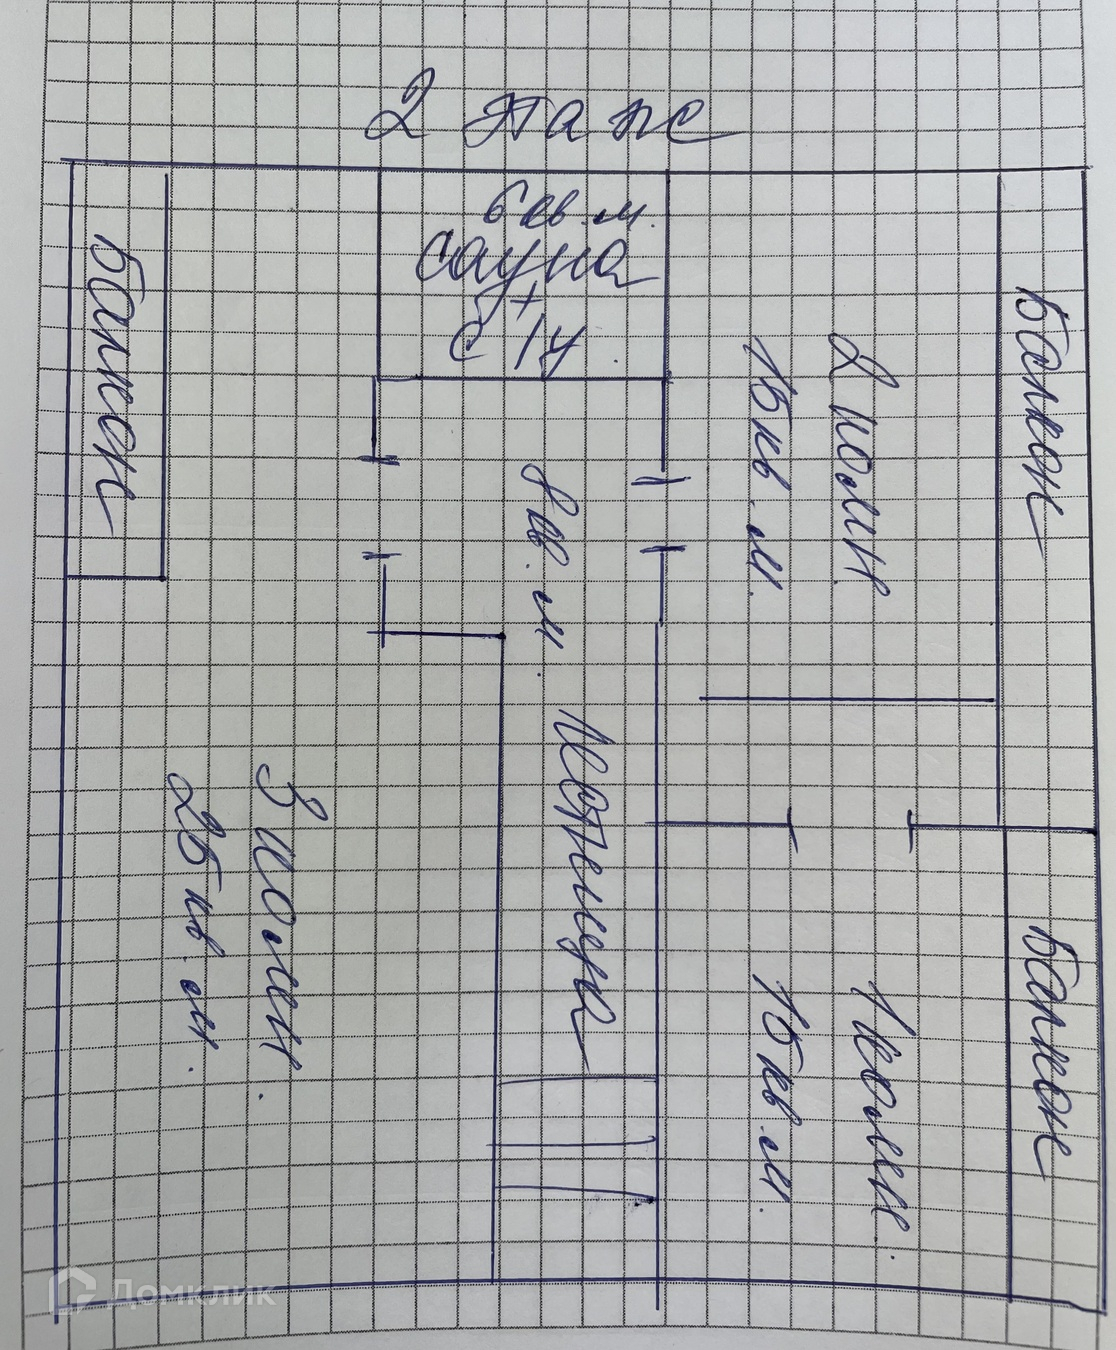 2 этаж
6 кв.м.
сауна
+
с/у.
Балкон
Балкон
2 комн
15 кв.м.
8 кв.м.
3 комн.
25 кв.м.
1 комн.
15 кв.м.
Балкон
Домклик